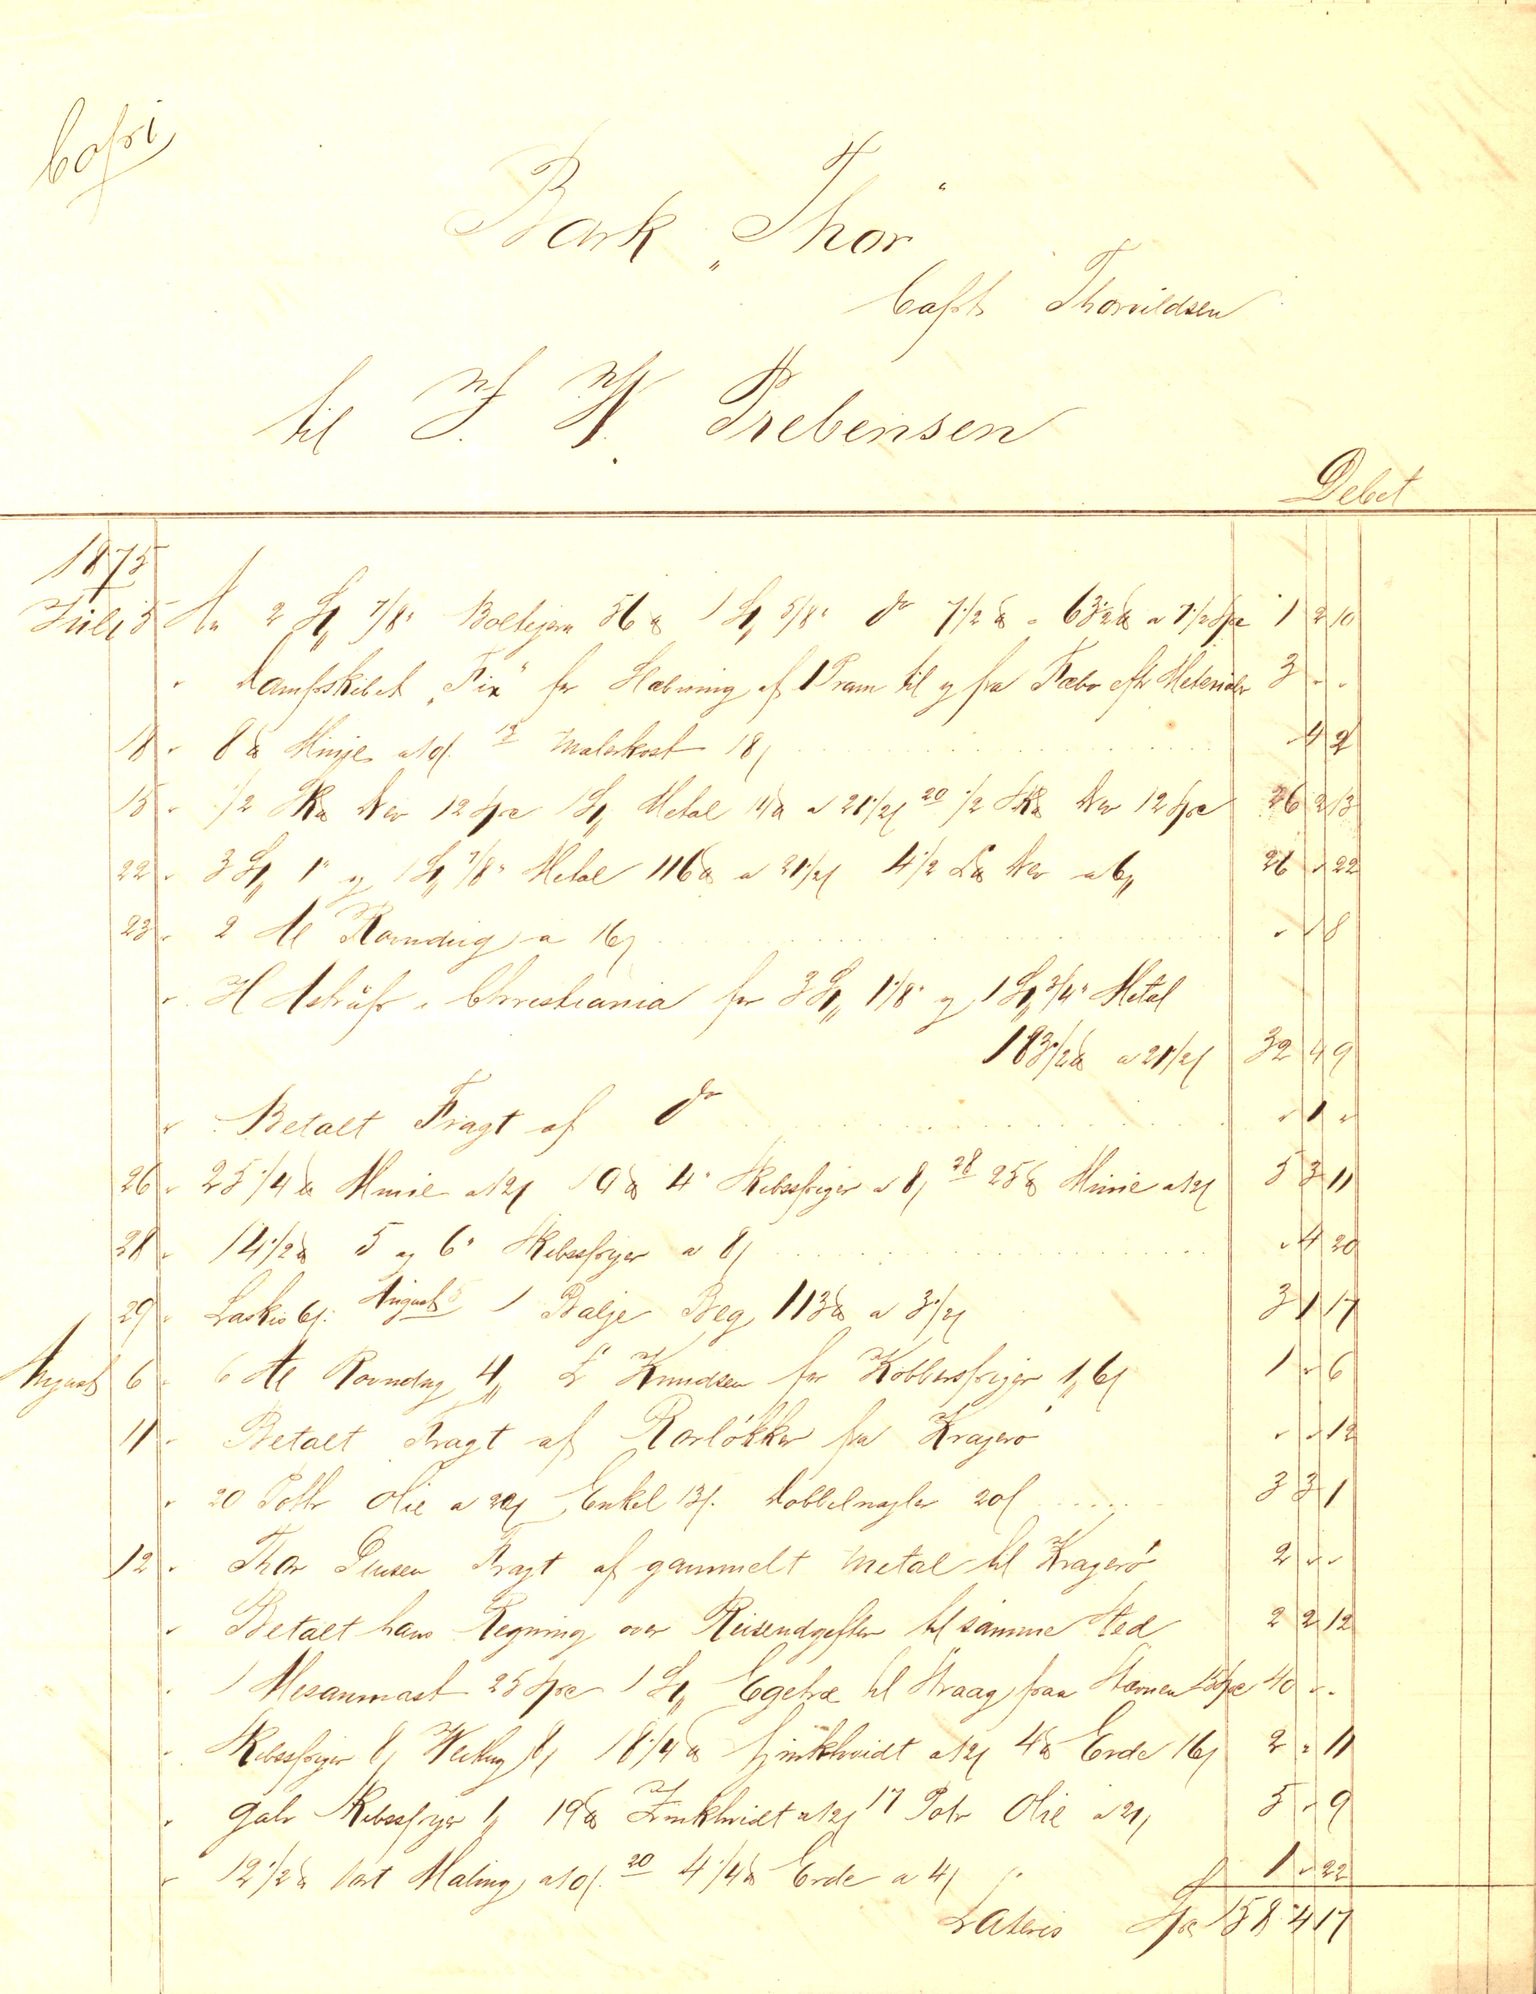 Copi
Bark "Thor"
Capt. Thorvildsen
til J. W. Prebensen
Debet
1875
Juli 5 An 2 St 7/8" Boltejern 56 ℔ 1 St 5/8" do 7 1/2 ℔ = 63 1/2 ℔ a 7 1/2 Spe 1 2 10
" Dampskibet "Fix" for Hævning af 1 Pram til og fra Fæbo eft Materialer 3 " "
18 " 8 ℔ Minje a 10 ſ. 1 Malerkost 18 ſ " 4 2
15 " 1/2 Sk℔ Nev 12 Spe 1 St Metal 11 ℔ a 21 1/2 ſ 20 1/2 Sk℔ Nev 12 Spe 26 2 13
22 " 3 St 1" og 1 St 7/8" Metal 116 ℔ a 21 1/2 ſ 4 1/2 L℔ Nev a 6 " 26 " 22
23 " 2 Al Ravndug a 16 ſ " " 8
" H Astrup i Christiania for 3 St 1 1/8" og 1 St 3/4" Metal
183 1/2 ℔ a 21 1/2 ſ 32 4 9
" Betalt Fragt af do " 1 "
26 " 25 1/4 ℔ Minie a 12 ſ 10 ℔ 4" Skibsspiger a 8 ſ 28 25 ℔ Minie a 12 ſ 5 3 11
28 " 14 1/2 ℔ 5 og 6" Skibsspiger a 8 ſ " 4 20
29 " Laskis 6 ſ: August 5 1 Balje Beg 113 ℔ a 3 1/2 ſ 3 1 17
August 6 " 6 Al Ravndug 4 " L Knudsen for Kobberspiger 1 " 6 ſ 1 " 6
11 " Betalt Fragt af Rorløkker fra Kragerø " " 12
" 20 Potter Olie a 20 ſ Enkel 13 ſ. Dobbelnagler 20 ſ 3 3 1
12 " Thor Fragt af gammelt Metal til Kragerø 2 " "
" Betalt hans Regning over Reiseudgifter til samme Sted 2 2 12
" 1 Mesanmast 25 Spe 1 St Egetræ til Straag fraa Stevnen 15 Spe 40 " "
" Skibsspiger 8 ſ 8 ſ 18 1/4 ℔ Zinkhvidt a 12 ſ 4 ℔ Erde 16 ſ 2 " 11
" galv Skibsspiger 1 " 19 ℔ Zinkhvidt a 12 ſ 17 Potr Olie a 21 ſ 5 " 9
" 12 1/2 ℔ sort Maling a 10 ſ. 20 4 1/4 ℔ Erde a 4 ſ 1 " 22
Lateris Spe 158 4 17